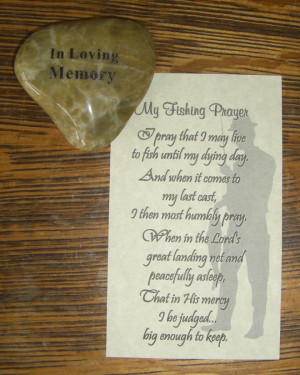 In Loving
Memory
My Fishing Prayer
I pray that I may live
to fish until my dying day.
And when it comes to
my last cast,
I then most humbly pray.
When in the Lord's
great landing net and
peacefully asleep,
That in His mercy
I be judged...
big enough to keep.